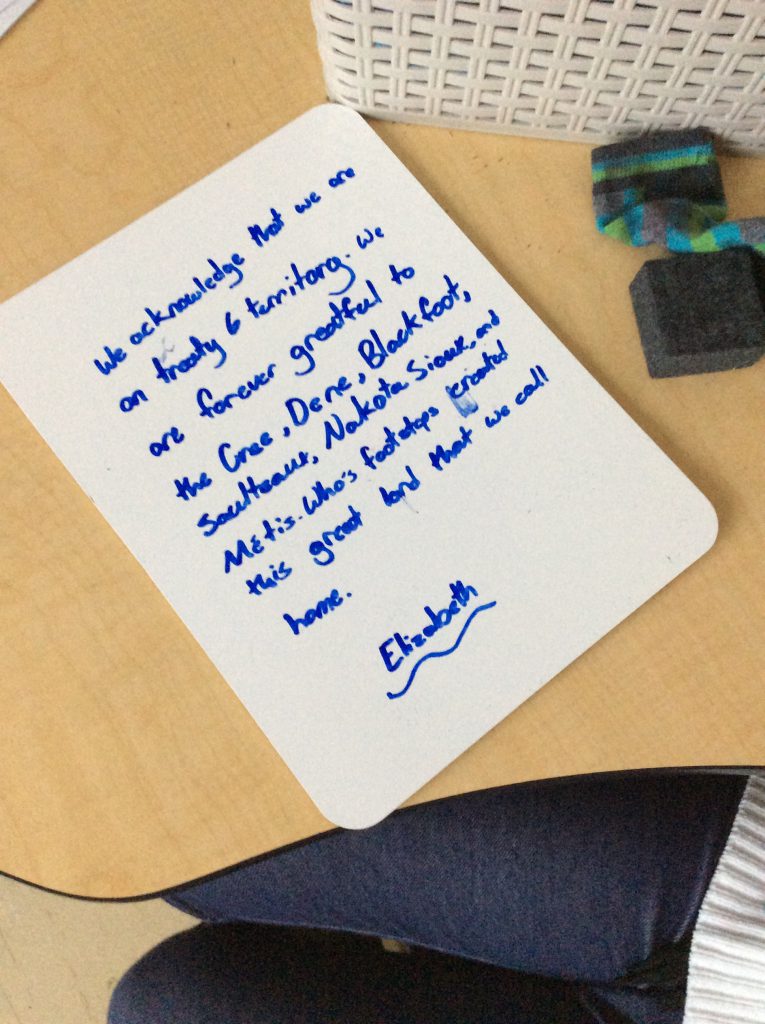 We acknowledge that we are
on treaty 6 territory. We
are forever greatful to
the Cree, Dene, Blackfoot,
Saulteaux, Nakota Sioux, and
Métis. Who's footsteps created
this great land that we call
home.
Elizabeth